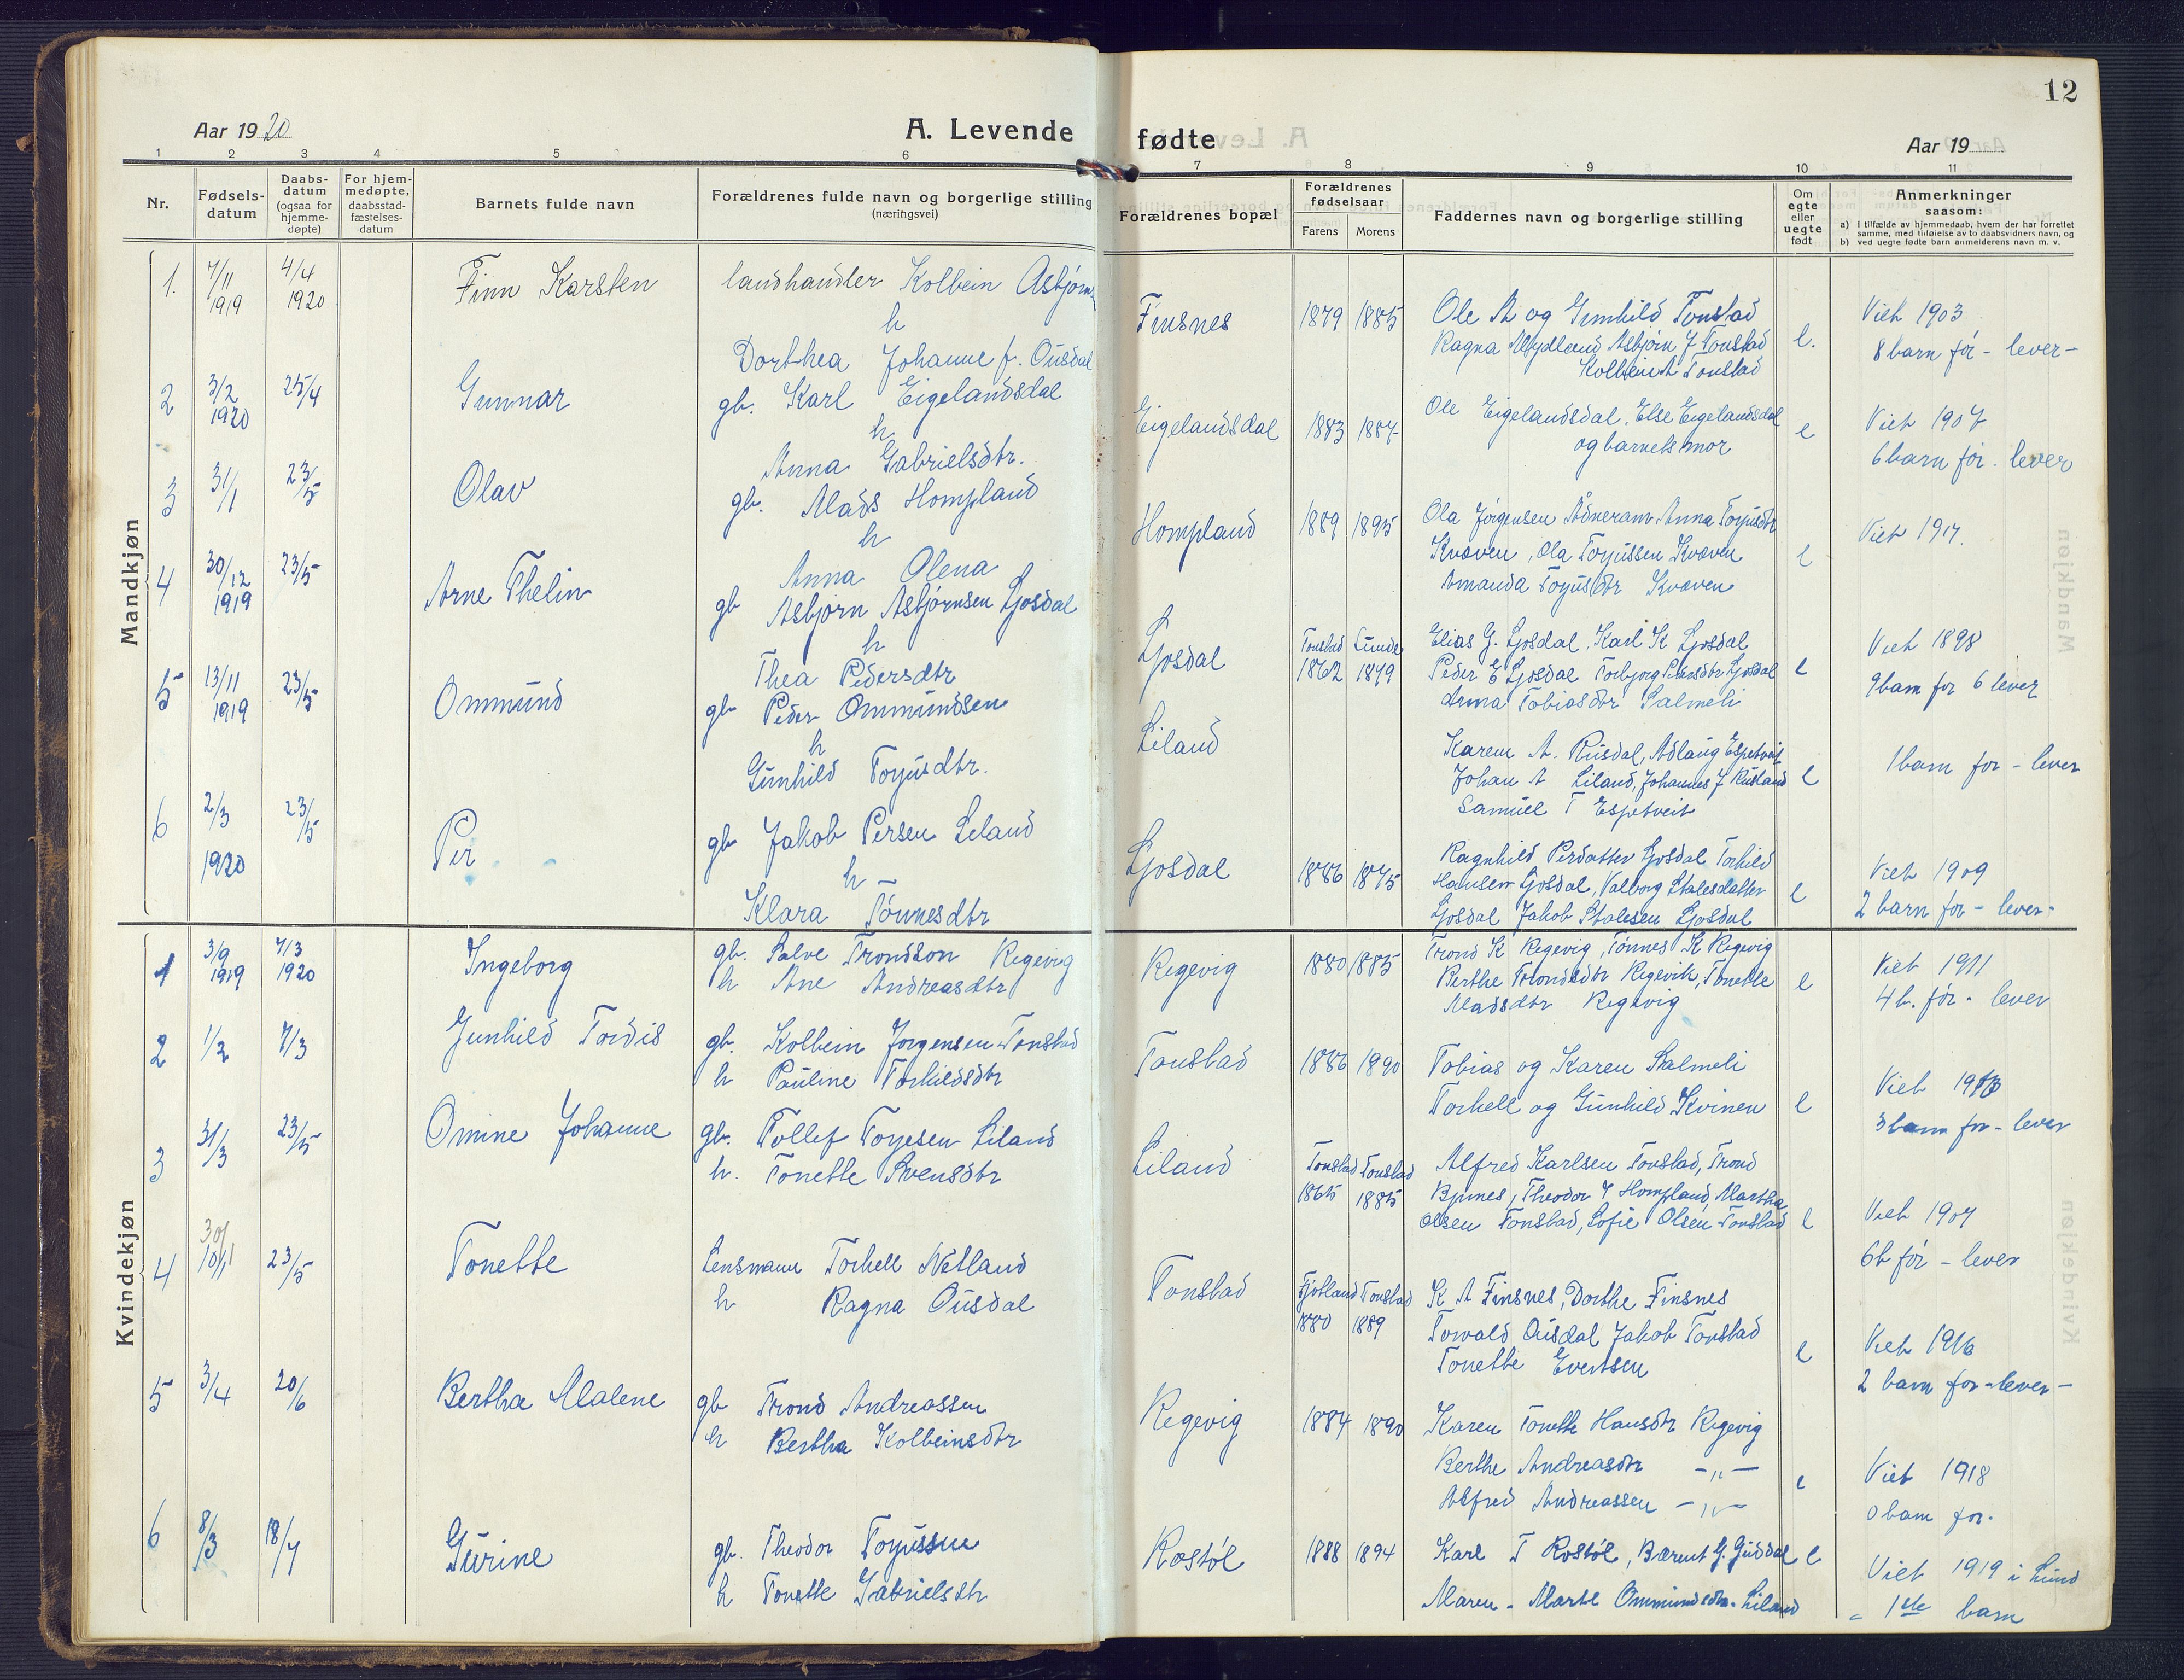 12
Aar 1920
A. Levende fødte
Aar 19
1 2 3 4 5 6 7 8 9 10 11
Nr.
Fødsels-datum
Daabs-datum (ogsaa for hjemme-døpte)
For hjem-medøpte, daabsstad-fæstelses-datum
Barnets fulde navn
Forældrenes fulde navn og borgerlige stilling (næringsvei)
Forældrenes bopæl
Forældrenes fødselsaar
Farens Morens
Faddernes navn og borgerlige stilling
Om egte eller uegte født
Anmerkninger
saasom:
a) I tilfælde av hjemmedaab, hvem der har forrettet samme, med tilføielse av to daabsvidners navn, og
b) ved uegte fødte barn anmelderens navn m. v.
Mandkjøn
1. 7/11 1919 4/4 1920 Finn Karsten
landhandler Kolbein Asbjørns
h
Dorthea Johanne f. Ousdal
Finsnes 1879 1885
Ole A og Gunhild Tonstad
Ragna Mydland Asbjørn J Tonstad
Kolbein A Tonstad
e.
Viet 1903
8 barn før - lever -
2 3/2 1920 25/4 Gunnar
gb. Karl Eigelandsdal
h
Anna Gabrielsdtr.
Eigelandsdal 1883 1887
Ole Eigelandsdal, Else Eigelandsdal
og barnets mor
e
Viet 1907
6 barn før. lever
3 31/1 23/5 Olav
gb. Mads Hompland
h
Anna Olena
Hompland 1889 1895
Ola Jørgensen Ådneram Anna Torjusdtr
Kvæven, Ola Torjussen Kvæven
Amanda Torjusdtr Kvæven
e
Viet 1917.
4 30/12 1919 23/5 Arne Thelin
gb Asbjørn Asbjørnsen Ljosdal
h
Thea Pedersdtr
Ljosdal Tonstad 1862 Lunde 1879
Elias G. Ljosdal, Karl K Ljosdal
Peder E Ljosdal Torbjorg Pedersdtr Ljosdal
Anna Tobiasdtr Salmeli
e
Viet 1898
9 barn før 6 lever
5 13/11 1919 23/5 Ommund
gb Peder Ommundsen
h
Gunhild Torjusdtr.
Liland
Karen A. Rusdal, Adlaug Espetveit
Johan A Liland, Johannes J Rusland
Samuel T Espetveit
e
1 barn før - lever
6 2/3 1920 23/5 Per
gb Jakob Persen Liland
h
Klara Tønnesdtr
Ljosdal 1886 1875
Ragnhild Persdatter Ljosdal Torkild
Hansen Ljosdal, Valborg Stalesdatter
Ljosdal Jakob Stalesen Ljosdal
e
Viet 1909
2 barn før - lever -
Kvindekjøn
1 3/9 1919 7/3 1920 Ingeborg
gb. Salve Trondson Regevig
h Ane Andreasdtr
Regevig 1880 1885
Trond K Regevig, Tønnes K Regevig
Berthe Trondsdtr Regevik, Tonette
Madsdtr Regevig
e
Viet 1911
4 b. før - lever
2 1/2 7/3 Gunhild Tordis
gb. Kolbein Jorgensen Tonstad
h Pauline Torkildsdtr
Tonstad 1886 1890
Tobias og Karen Salmeli
Torkell og Gunhild Kvinen
e
Viet
3 barn før - lever
3 31/3 23/5 Omine Johanne
gb. Tollef Torjesen Liland
h. Tonette Svensdtr
Liland Tonstad 1865 Tonstad 1885
Alfred Karlsen Tonstad, Trond
Bjunes, Theodor T Hompland, Martha
Olsen Tonstad, Sofie Olsen Tonstad
e
Viet 1907
6 b før - lever
4 10/1 30/ 23/5 Tonette
Lensmann Torkell Netland
h Ragna Ousdal
Tonstad Fjotland 1880 Tonstad 1889
K A Finsnes, Dorthe Finsnes
Torvald Ousdal Jakob Tonstad
Tonette Evertsen
e
Viet 1916
2 barn før - lever -
5 3/4 20/6 Bertha Malene
gb Trond Andreassen
h Bertha Kolbeinsdtr
Regevig 1884 1890
Karen Tonette Hansdtr Regevig
Berthe Andreasdtr -"-
Alfred Andreassen -"-
e
Viet 1918
0 barn før.
6 8/3 18/7 Gurine
gb. Theodor Torjussen
h Tonette Gabrielsdtr
Rostøl 1888 1894
Karl T Rostøl, Bærent G. Gusdal
Maren - Marte Ommundsdtr. Liland
e
Viet 1919 i Lund
- 1ste barn